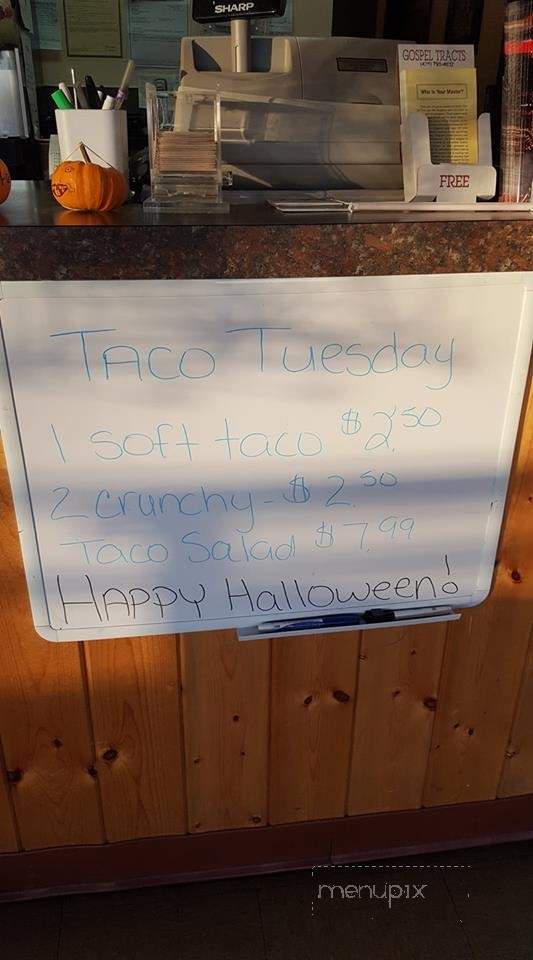 SHARP
GOSPEL TRACTS
Who Is Your Master?
FREE
TACO Tuesday
1 soft taco $2.50
2 crunchy - $2.50
Taco Salad $7.99
HAPPY Halloween!
menupix